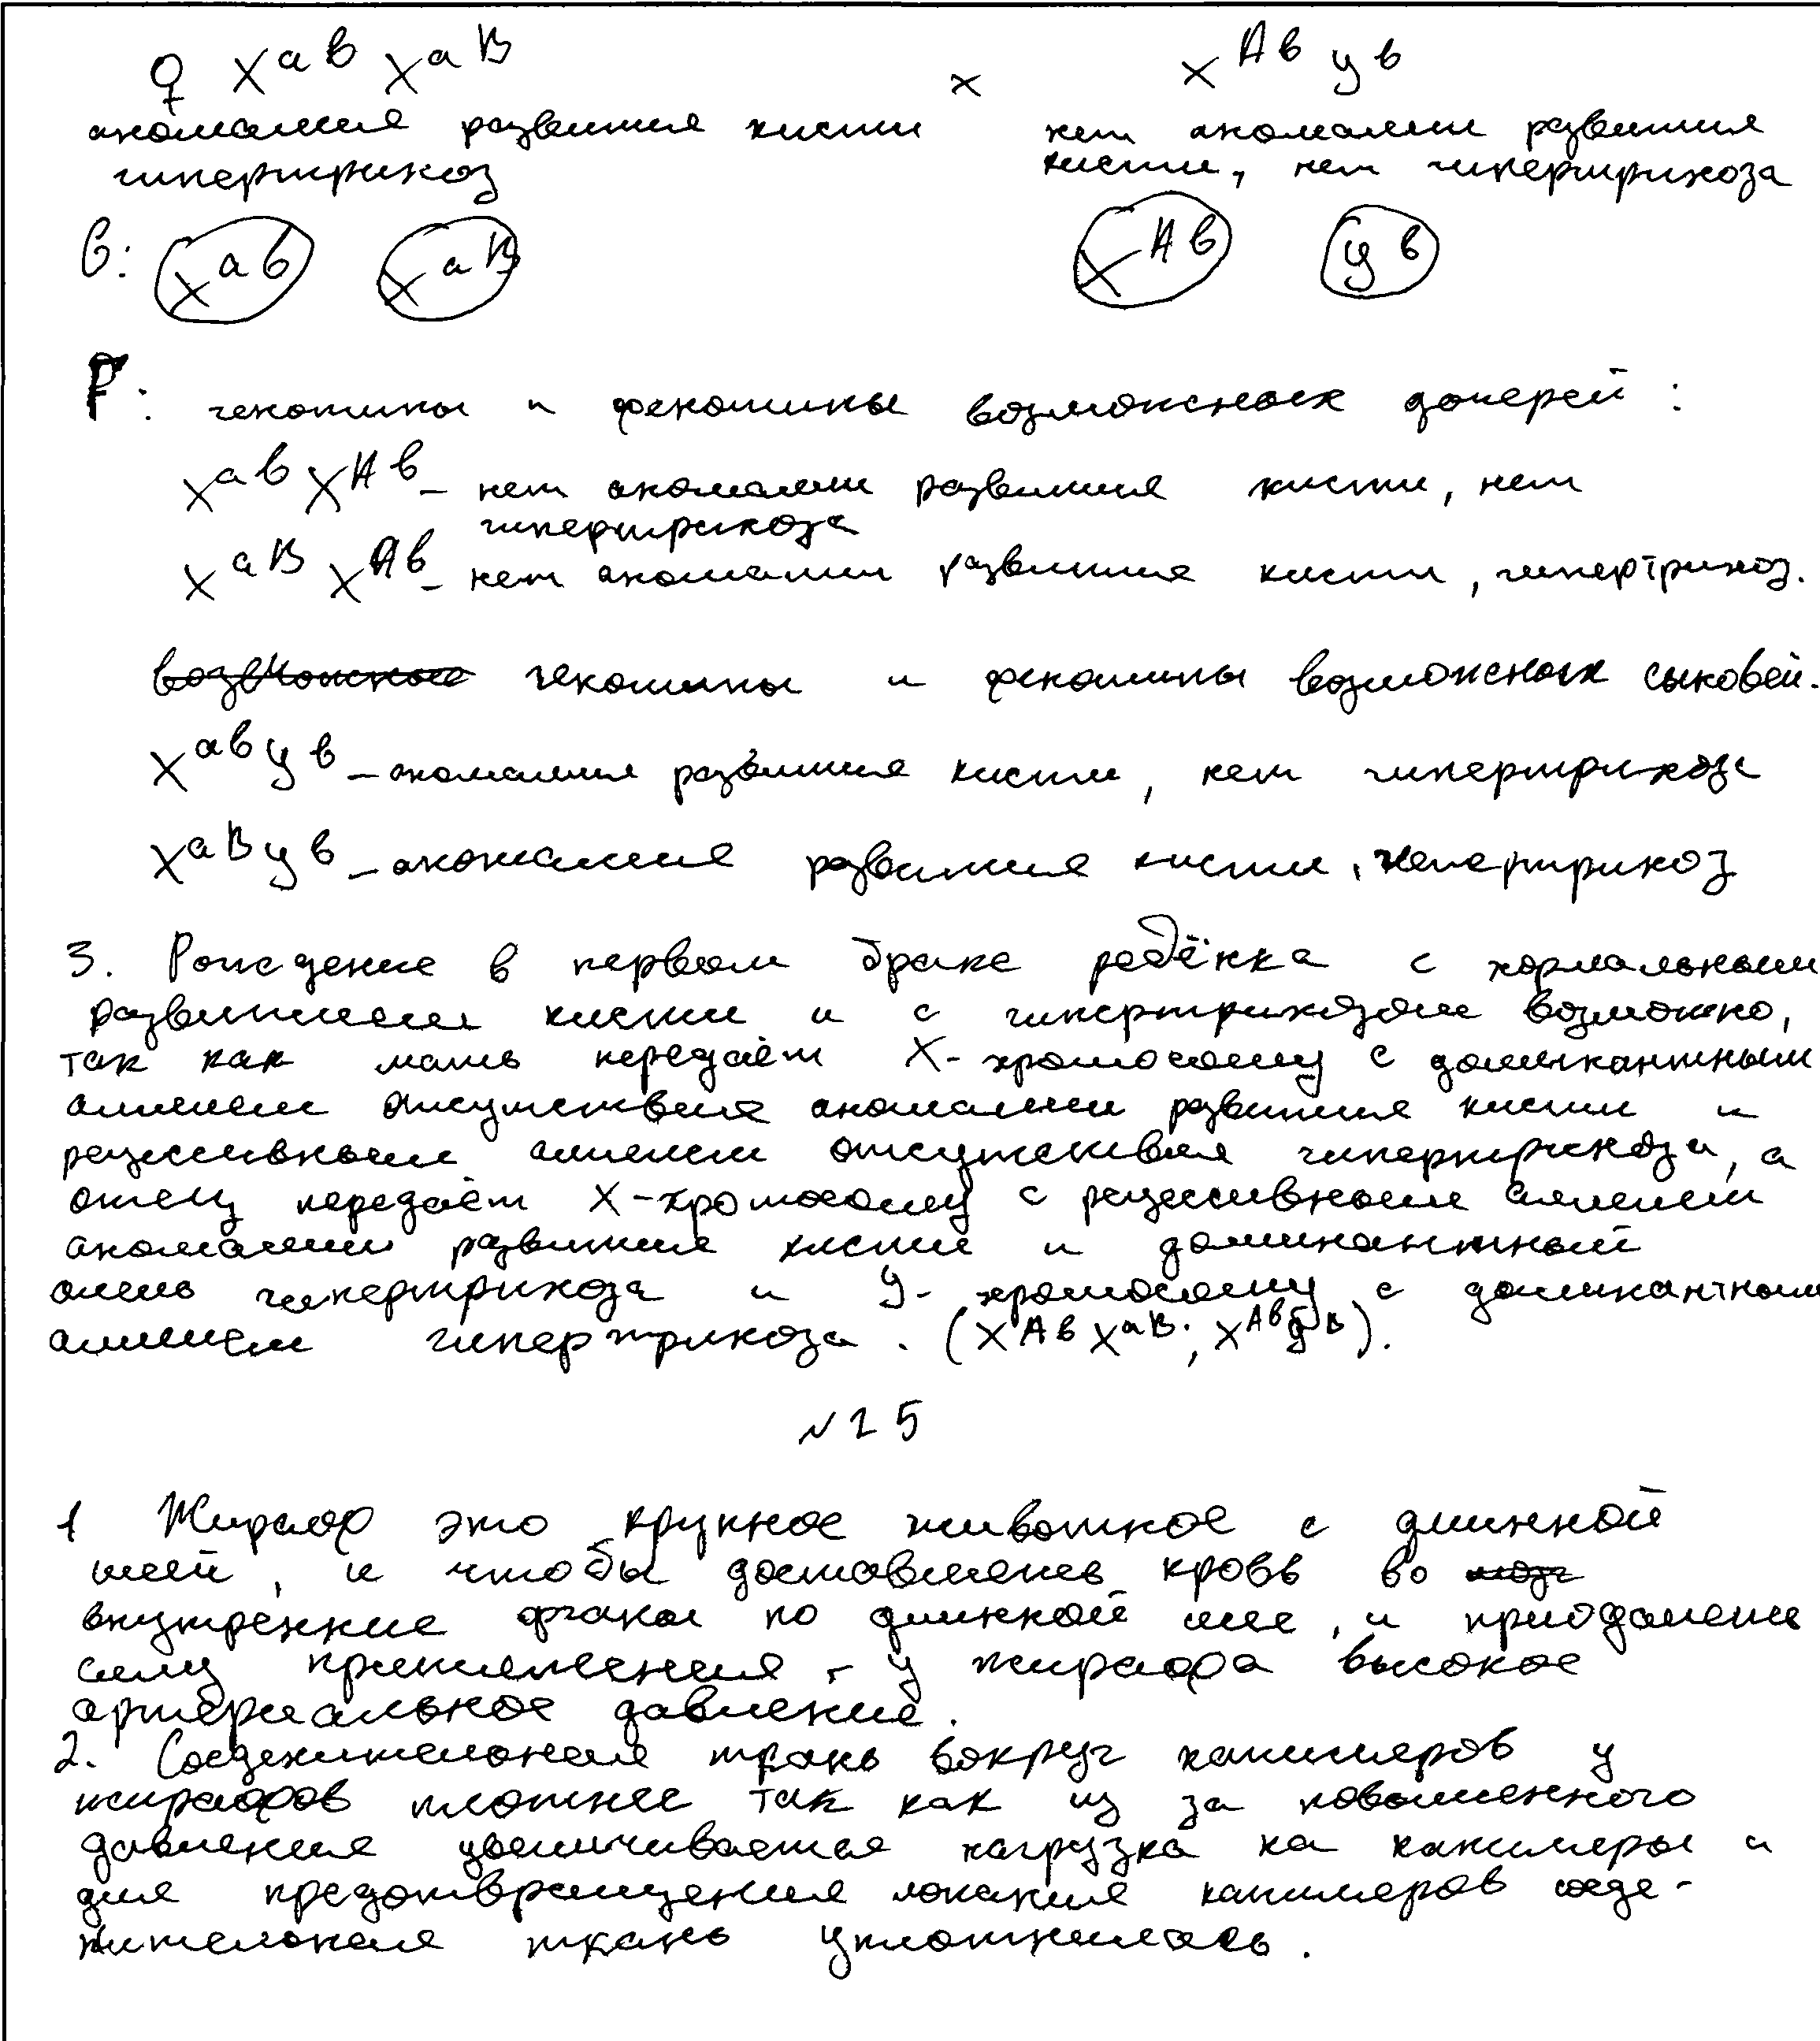 ♀ X^ab X^aB × X^Ab У^b
аномалия развития кисти нет аномалии развития
гипертрихоз кисти, нет гипертрихоза
G: X^ab X^aB X^Ab У^b
F: генотипы и фенотипы возможных дочерей:
X^ab X^Ab – нет аномалии развития кисти, нет
гипертрихоза
X^aB X^Ab – нет аномалии развития кисти, гипертрихоз.
возможные генотипы и фенотипы возможных сыновей.
X^ab У^b – аномалия развития кисти, нет гипертрихоза
X^aB У^b – аномалия развития кисти, гипертрихоз
3. Рождение в первом браке ребёнка с нормальным
развитием кисти и с гипертрихозом возможно,
так как мать передаёт X-хромосому с доминантным
аллелем отсутствия аномалии развития кисти и
рецессивным аллелем отсутствия гипертрихоза, а
отец передаёт X-хромосому с рецессивным аллелем
аномалии развития кисти и доминантный
аллель гипертрихоза и У-хромосому с доминантным
аллелем гипертрихоза. (X^Ab X^aB; X^Ab У^B).
№25
1 Жираф это крупное животное с длинной
шеей, и чтобы доставлять кровь во мозг
внутренние органы по длинной шее, и преодолеть
силу притяжения, у жирафа высокое
артериальное давление.
2. Соединительная ткань вокруг капилляров у
жирафов плотнее так как из за повышенного
давления увеличивается нагрузка на капилляры и
для предотвращения локания капилляров соеде-
нительная ткань уплотнилась.